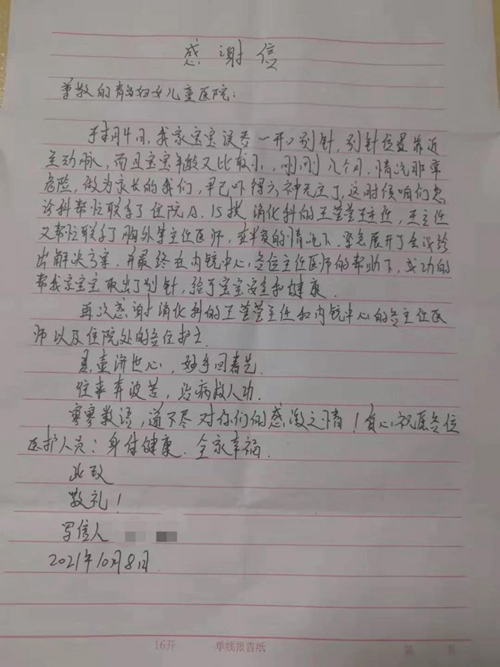 感谢信
尊敬的青岛妇女儿童医院:
于本月4日,我家宝宝误吞一开口别针,别针位置靠近
主动脉,而且宝宝年龄又比较小,刚刚几个月,情况非常
危险,做为家长的我们,早已吓得六神无主了,这时候咱们急
诊科帮忙联系了住院处,15楼消化科的王莹莹主任,王主任
又帮忙联系了胸外等主任医师,在的情况下,紧急展开了会诊给
出解决方案,并最终在内镜中心,各位主任医师的帮助下,成功的
帮我家宝宝取出了别针,给了宝宝安全和健康.
再次感谢消化科的王莹莹主任和内镜中心的各主任医
师以及住院处的各位护士.
悬壶济世心,妙手回春先.
往来奔波苦,治病救人功.
寥寥数语,道不尽对你们的感激之情!衷心祝愿各位
医护人员:身体健康.全家幸福.
此致
敬礼!
写信人
2021年10月8日
16开 单线报告纸 第 页